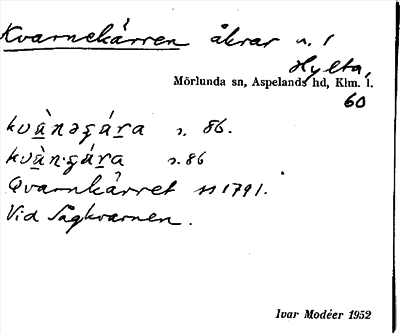 Kvarnekärren åkrar n. 1
Hylta,
Mörlunda sn, Aspelands hd, Klm. l.
60
kvànəʒára s. 86.
kvàn·ʒára s. 86
Qvarnkärret ss 1791.
Vid Sågkvarnen.
Ivar Modéer 1952